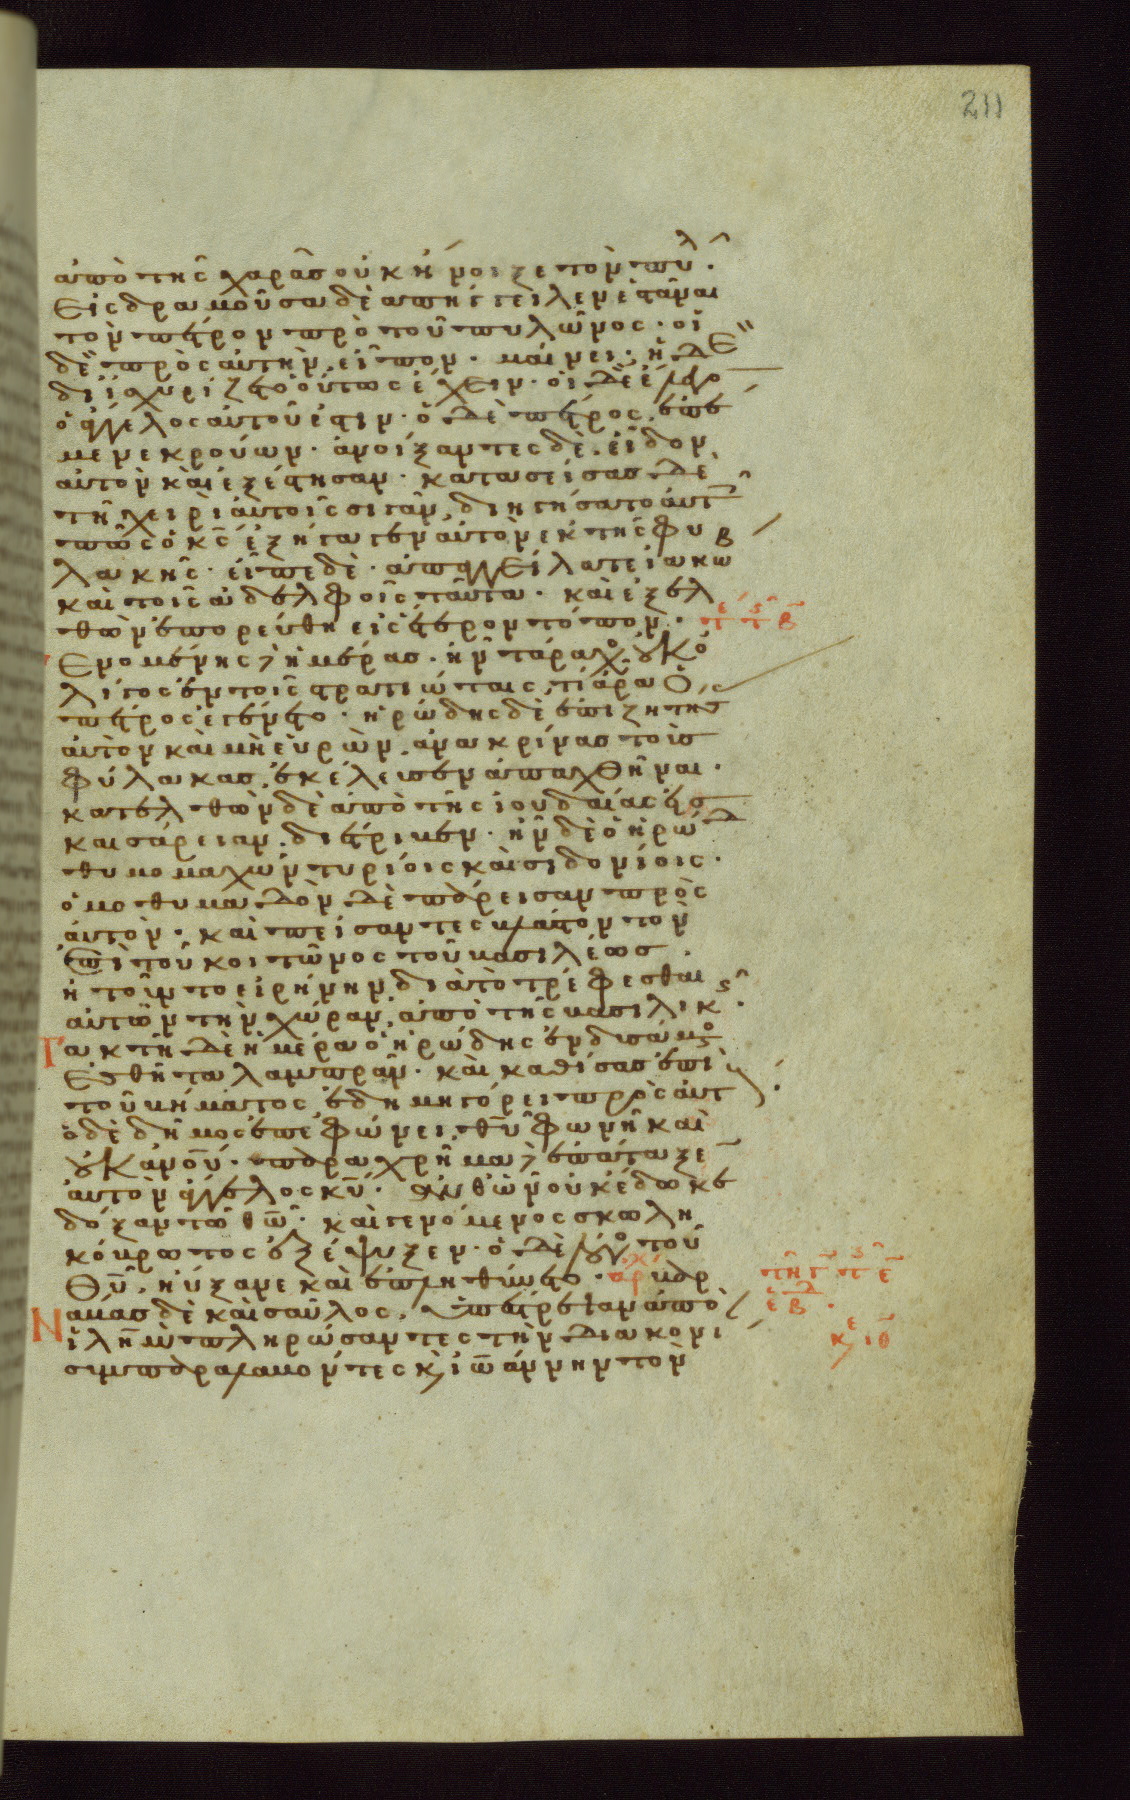 211
ἀπὸ τῆς χαρᾶσ οὐκ ἤνοιξε τὸν πυλ
Εἰσδραμοῦσα δὲ ἀπήγγειλεν ἑστάναι
τὸν πέτρον πρὸ τοῦ πυλῶνος · οἱ
δὲ πρὸς αὐτὴν εἶπον · μαίνει · ἡ δε
διϊσχυρίζετο οὕτως ἔχειν · οἱ δὲ ἔλεγον
ὁ ἄγγελος αὐτοῦ ἐστιν · ὁ δὲ πέτρος ἐπέ
μενε κρούων · ἀνοίξαντες δὲ εἶδον
αὐτὸν καὶ ἐξέστησαν · κατασείσασ δὲ
τῆ χειρὶ αὐτοῖς σιγᾶν διηγήσατο αὐτ
πῶς ὁ κς ἐξήγαγεν αὐτὸν ἐκ τῆς φυ
λακῆς · εἶπε δὲ · ἀπαγγείλατε ϊακω
καὶ τοῖς ἀδελφοῖς ταῦτα · καὶ ἐξελ
θὼν ἐπορεύθη εἰς ἕτερον τόπον ·
Γενομένης ἡμέρασ · ἦν τάραχος οὐκ ὀ
λίγος ἐν τοῖς στρατιώταις τί ἄρα ὁ
πέτρος ἐγένετο · ἡρώδης δὲ ἐπιζητησ
αὐτὸν καὶ μὴ εὑρὼν ἀνακρίνασ τοὺσ
φύλακασ ἐκέλευσεν ἀπαχθῆναι ·
κατελθὼν δὲ ἀπὸ τῆς ἰουδαίας εἰσ
καισάρειαν διέτριβεν · ἦν δὲ ὁ ἡρώδ
θυμομαχῶν τυρίοις καὶ σιδονίοις ·
ὁμοθυμαδὸν δὲ παρεισαν πρὸς
αὐτόν · καὶ πείσαντες βλάστον τὸν
ἐπὶ τοῦ κοιτῶνος τοῦ βασιλέωσ
ἠτοῦντο εἰρήνην διὰ τὸ τρέφεσθαι
αὐτῶν τὴν χώραν ἀπὸ τῆς βασιλικ ·
Τακτῆ δὲ ἡμέρα ὁ ἡρώδης ἐνδυσάμενος
ἐσθῆτα λαμπρὰν · καὶ καθίσασ ἐπὶ
τοῦ βήματος ἐδημηγόρει πρὸς αὐτ
ὁ δὲ δῆμος ἐπεφώνει θῦ φωνὴ καὶ
οὐκ ἀνοῦ · παραχρῆμα ἐπάταξε
αὐτὸν ἄγγελος κυ · ἀνθ ὧν οὐκ ἔδωκε
δόξαν τῶ θῶ · καὶ γενόμενος σκωλη
κόβρωτος ἐξέψυξεν · ὁ δὲ λόγος τοῦ
θῦ ηὔξανε καὶ ἐπληθύνετο · ἀρχ βαρ
Ναβασ δὲ καὶ σαῦλος ὑπέστρεψαν ἀπὸ
ἰλημ πληρώσαντες τὴν διακονι
συμπαραλαβόντες κ ἰωάννην τὸν